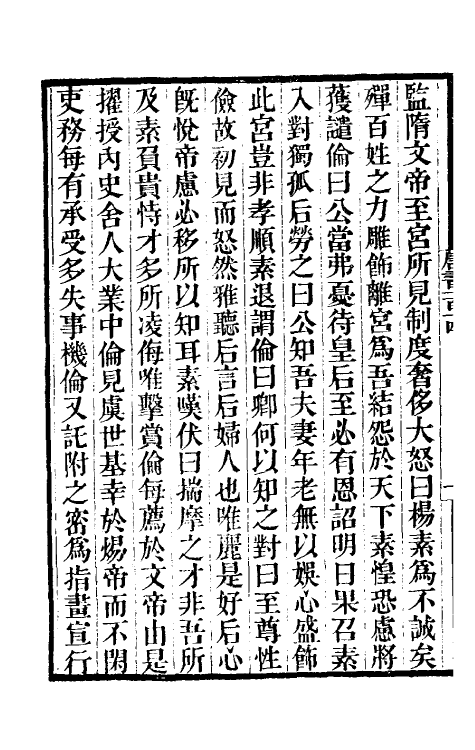 監隋文帝至宮所見制度奢侈大怒曰楊素為不誠矣
殫百姓之力雕飾離宮為吾結怨於天下素惶恐慮將
獲譴倫曰公當弗憂待皇后至必有恩詔明日果召素
入對獨孤后勞之曰公知吾夫妻年老無以娛心盛飾
此宮豈非孝順素退謂倫曰卿何以知之對曰至尊性
儉故初見而怒然雅聽后言后婦人也唯麗是好后心
旣悅帝慮必移所以知耳素嘆伏曰揣摩之才非吾所
及素負貴恃才多所凌侮唯擊賞倫每薦於文帝由是
擢授內史舍人大業中倫見虞世基幸於煬帝而不閑
吏務每有承受多失事機倫又託附之密為指畫宣行